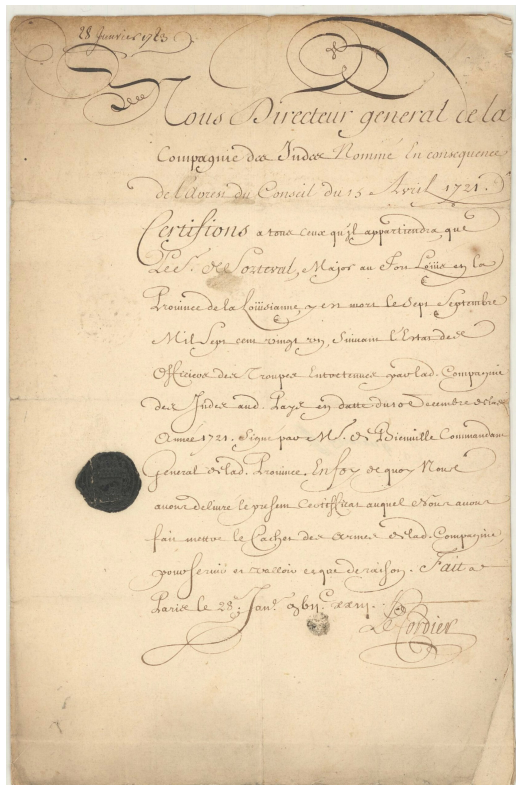 28 Janvier 1723
Nous Directeur general de la
Compagnie des Indes Nommé En consequence
de l'Arrest du Conseil du 15 Avril 1721.
Certifions a tous ceux qu'il appartiendra que
Le Sr. de Sorteval, Major au Fort Loüis en la
Province de la Loüisianne, y en mort le Sept Septembre
Mil Sept cent vingt un, Suivant l'Estat des
Officiers des Troupes Entretenues par lad. Compagnie
des Indes aud. Pays en datte du 10 Decembre de lad.
Année 1721. Signé par M. de Bienville Commandant
General de lad. Province. En foy de quoy Nous
avons delivré le present Certifficat auquel Nous avons
fait mettre le Cachet des Armes de lad. Compagnie
pour servir et valloir ce que de raison. Fait a
Paris le 28e. Janr.
Le Cordier